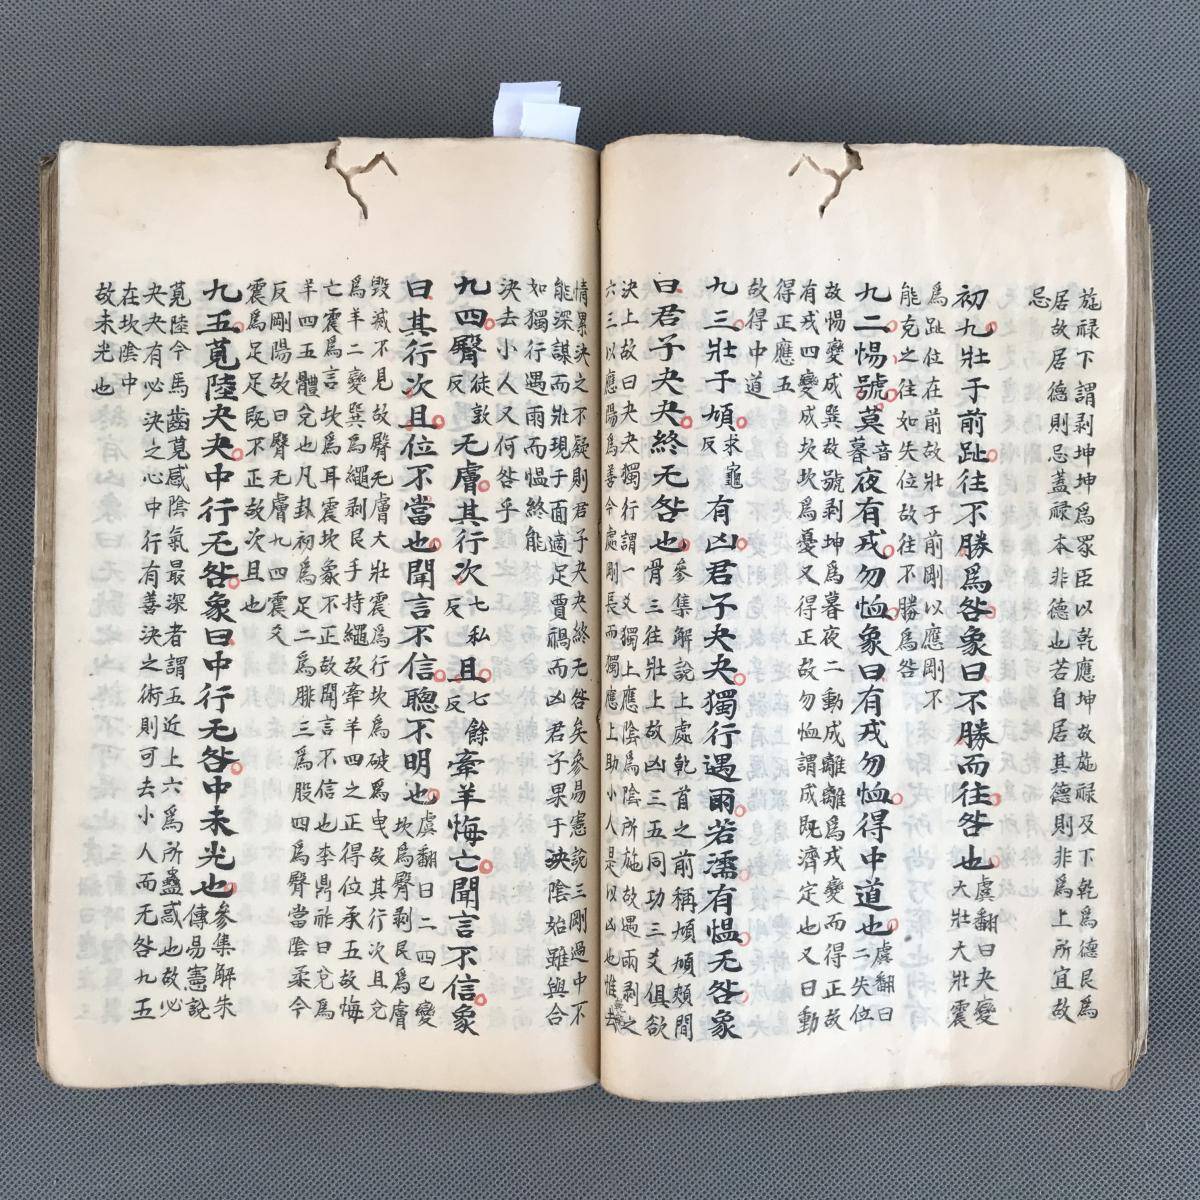 施祿下謂剥坤坤為眾臣以乾應坤故施祿及下乾為德艮為
居故居德則忌蓋祿本非德也若自居其德則非為上所宜故
忌
初九壯于前趾往不勝為咎象曰不勝而往咎也虞翻曰夬變
大壯大壯震
為趾位在前故壯于前剛以應剛不
能克之往如失位故往不勝為咎
九二惕號莫音暮夜有戎勿恤象曰有戎勿恤得中道也虞翻曰
二失位
故惕變成巽故號剥坤為暮夜二動成離離為戎變而得正故
有戎四變成坎坎為憂又得正故勿恤謂成既濟定也又曰動
得正應五
故得中道
九三壯于頄求龜反有凶君子夬夬獨行遇雨若濡有慍无咎象
曰君子夬夬終无咎也參集解說上處乾首之前稱頄頄頰間
骨三往壯上故凶三五同功三爻俱欲
決上故曰夬夬獨行謂一爻獨上應陰為陰所施故遇雨剥之
六三以應陽為善今處剛長而獨應上助小人是以凶也惟去
情累決之不疑則君子夬夬終无咎矣參易憲說三剛過中不
能深謀而壯現于面適足賈禍而凶君子果于決陰始雖與合
如獨行遇雨而慍終能
決去小人又何咎乎
九四臀徒敦反无膚其行次七私反且七餘反牽羊悔亡聞言不信象
曰其行次且位不當也聞言不信聰不明也虞翻曰二四已變
坎為臀剥艮為膚
毀滅不見故臀无膚大壯震為行坎為破為曳故其行次且兌
為羊二變巽為繩剥艮手持繩故牽羊四之正得位承五故悔
亡震為言坎為耳震坎象不正故聞言不信也李鼎祚曰兌為
羊四五體兌也凡卦初為足二為腓三為股四為臀當陰柔今
反剛陽故曰臀无膚九四震爻
震為足足既不正故次且也
九五莧陸夬夬中行无咎象曰中行无咎中未光也參集解朱
傳易憲說
莧陸今馬齒莧感陰氣最深者謂五近上六為所蠱惑也故必
夬夬有必決之心中行有善決之術則可去小人而无咎九五
在坎陰中
故未光也